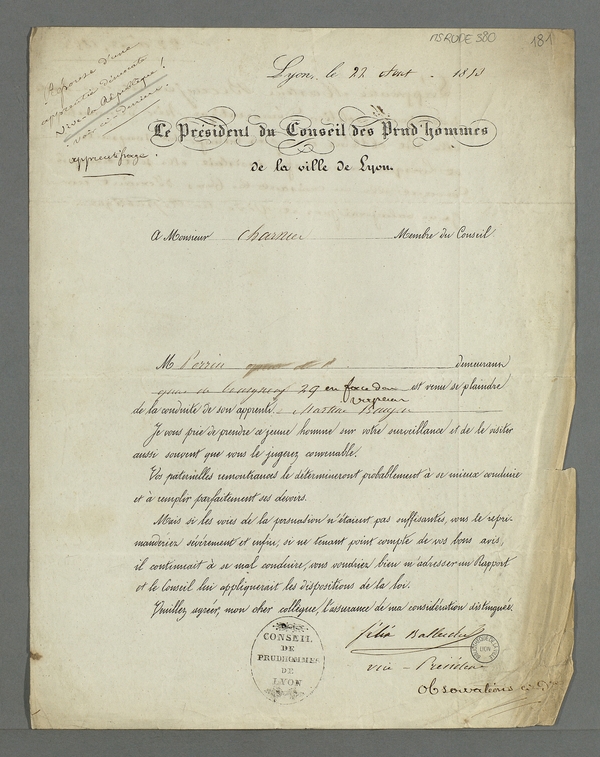 MS RUDE 380
181
Lyon, le 22 1843
Réponse d'une
apprentie démocrate
Vive la République!
voir ci derrière
apprentissage
Le Président du Conseil des Prud'hommes
de la ville de Lyon.
A Monsieur Charnier Membre du Conseil.
M Perrin demeurant
29 en face du est venu se plaindre
vapeur
de la conduite de son apprenti
Je vous prie de prendre ce jeune homme sur votre surveillance et de le visiter
aussi souvent que vous le jugerez convenable.
Vos paternelles remontrances le détermineront probablement à se mieux conduire
et à remplir parfaitement ses devoirs.
Mais si les voies de la persuation n'étaient pas suffisantes, vous le répri-
manderiez sévèrement et enfin, si ne tenant point compte de vos bons avis,
il continuait à se mal conduire, vous voudriez bien m'adresser un Rapport
et le Conseil lui appliquerait les dispositions de la loi.
Veuillez agréer, mon cher collègue, l'assurance de ma considération distinguée.
vice-Président
Observations
CONSEIL
DE
PRUDHOMMES
DE
LYON